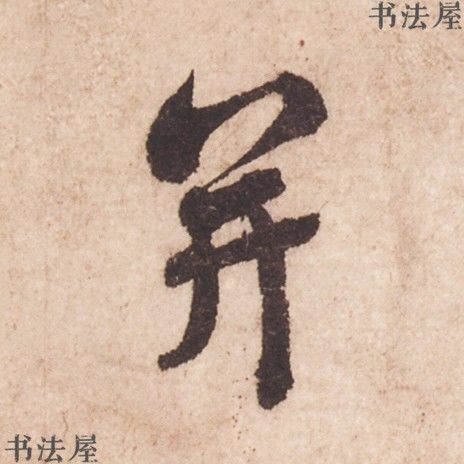 书法屋
并
书法屋